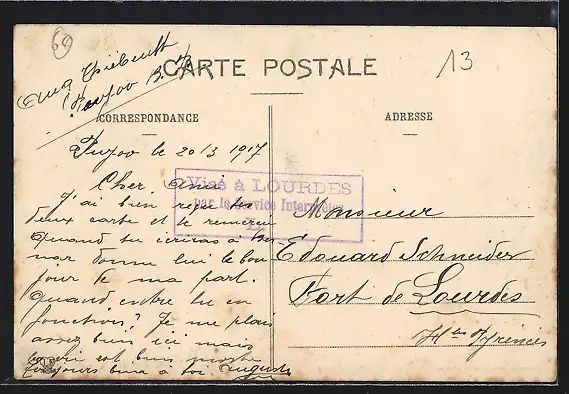 64
13
Aug Thiébault
CARTE POSTALE
CORRESPONDANCE
ADRESSE
Pujoo le 20/3 1917
Visé à LOURDES
par le Service Interprètes
Cher Ami
J'ai bien reçu tes
deux carte et te remercie
Quand tu écriras à
donne lui le bon
jour de ma part.
Quand entre tu en
fonction? Je me plais
assez bien ici mais
est bien
toujours bien à toi. Auguste
Monsieur
Edouard Schneider
Fort de Lourdes
Htes Pyrénées